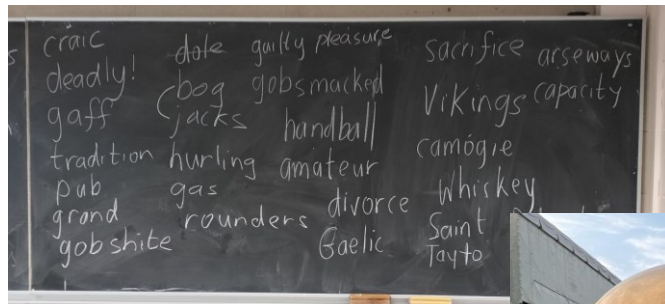 craic
deadly!
gaff
tradition
pub
grand
gobshite
dote
bog
jacks
hurling
gas
rounders
guilty pleasure
gobsmacked
handball
amateur
divorce
Gaelic
sacrifice
Vikings
camógie
Whiskey
Saint
Tayto
arseways
capacity